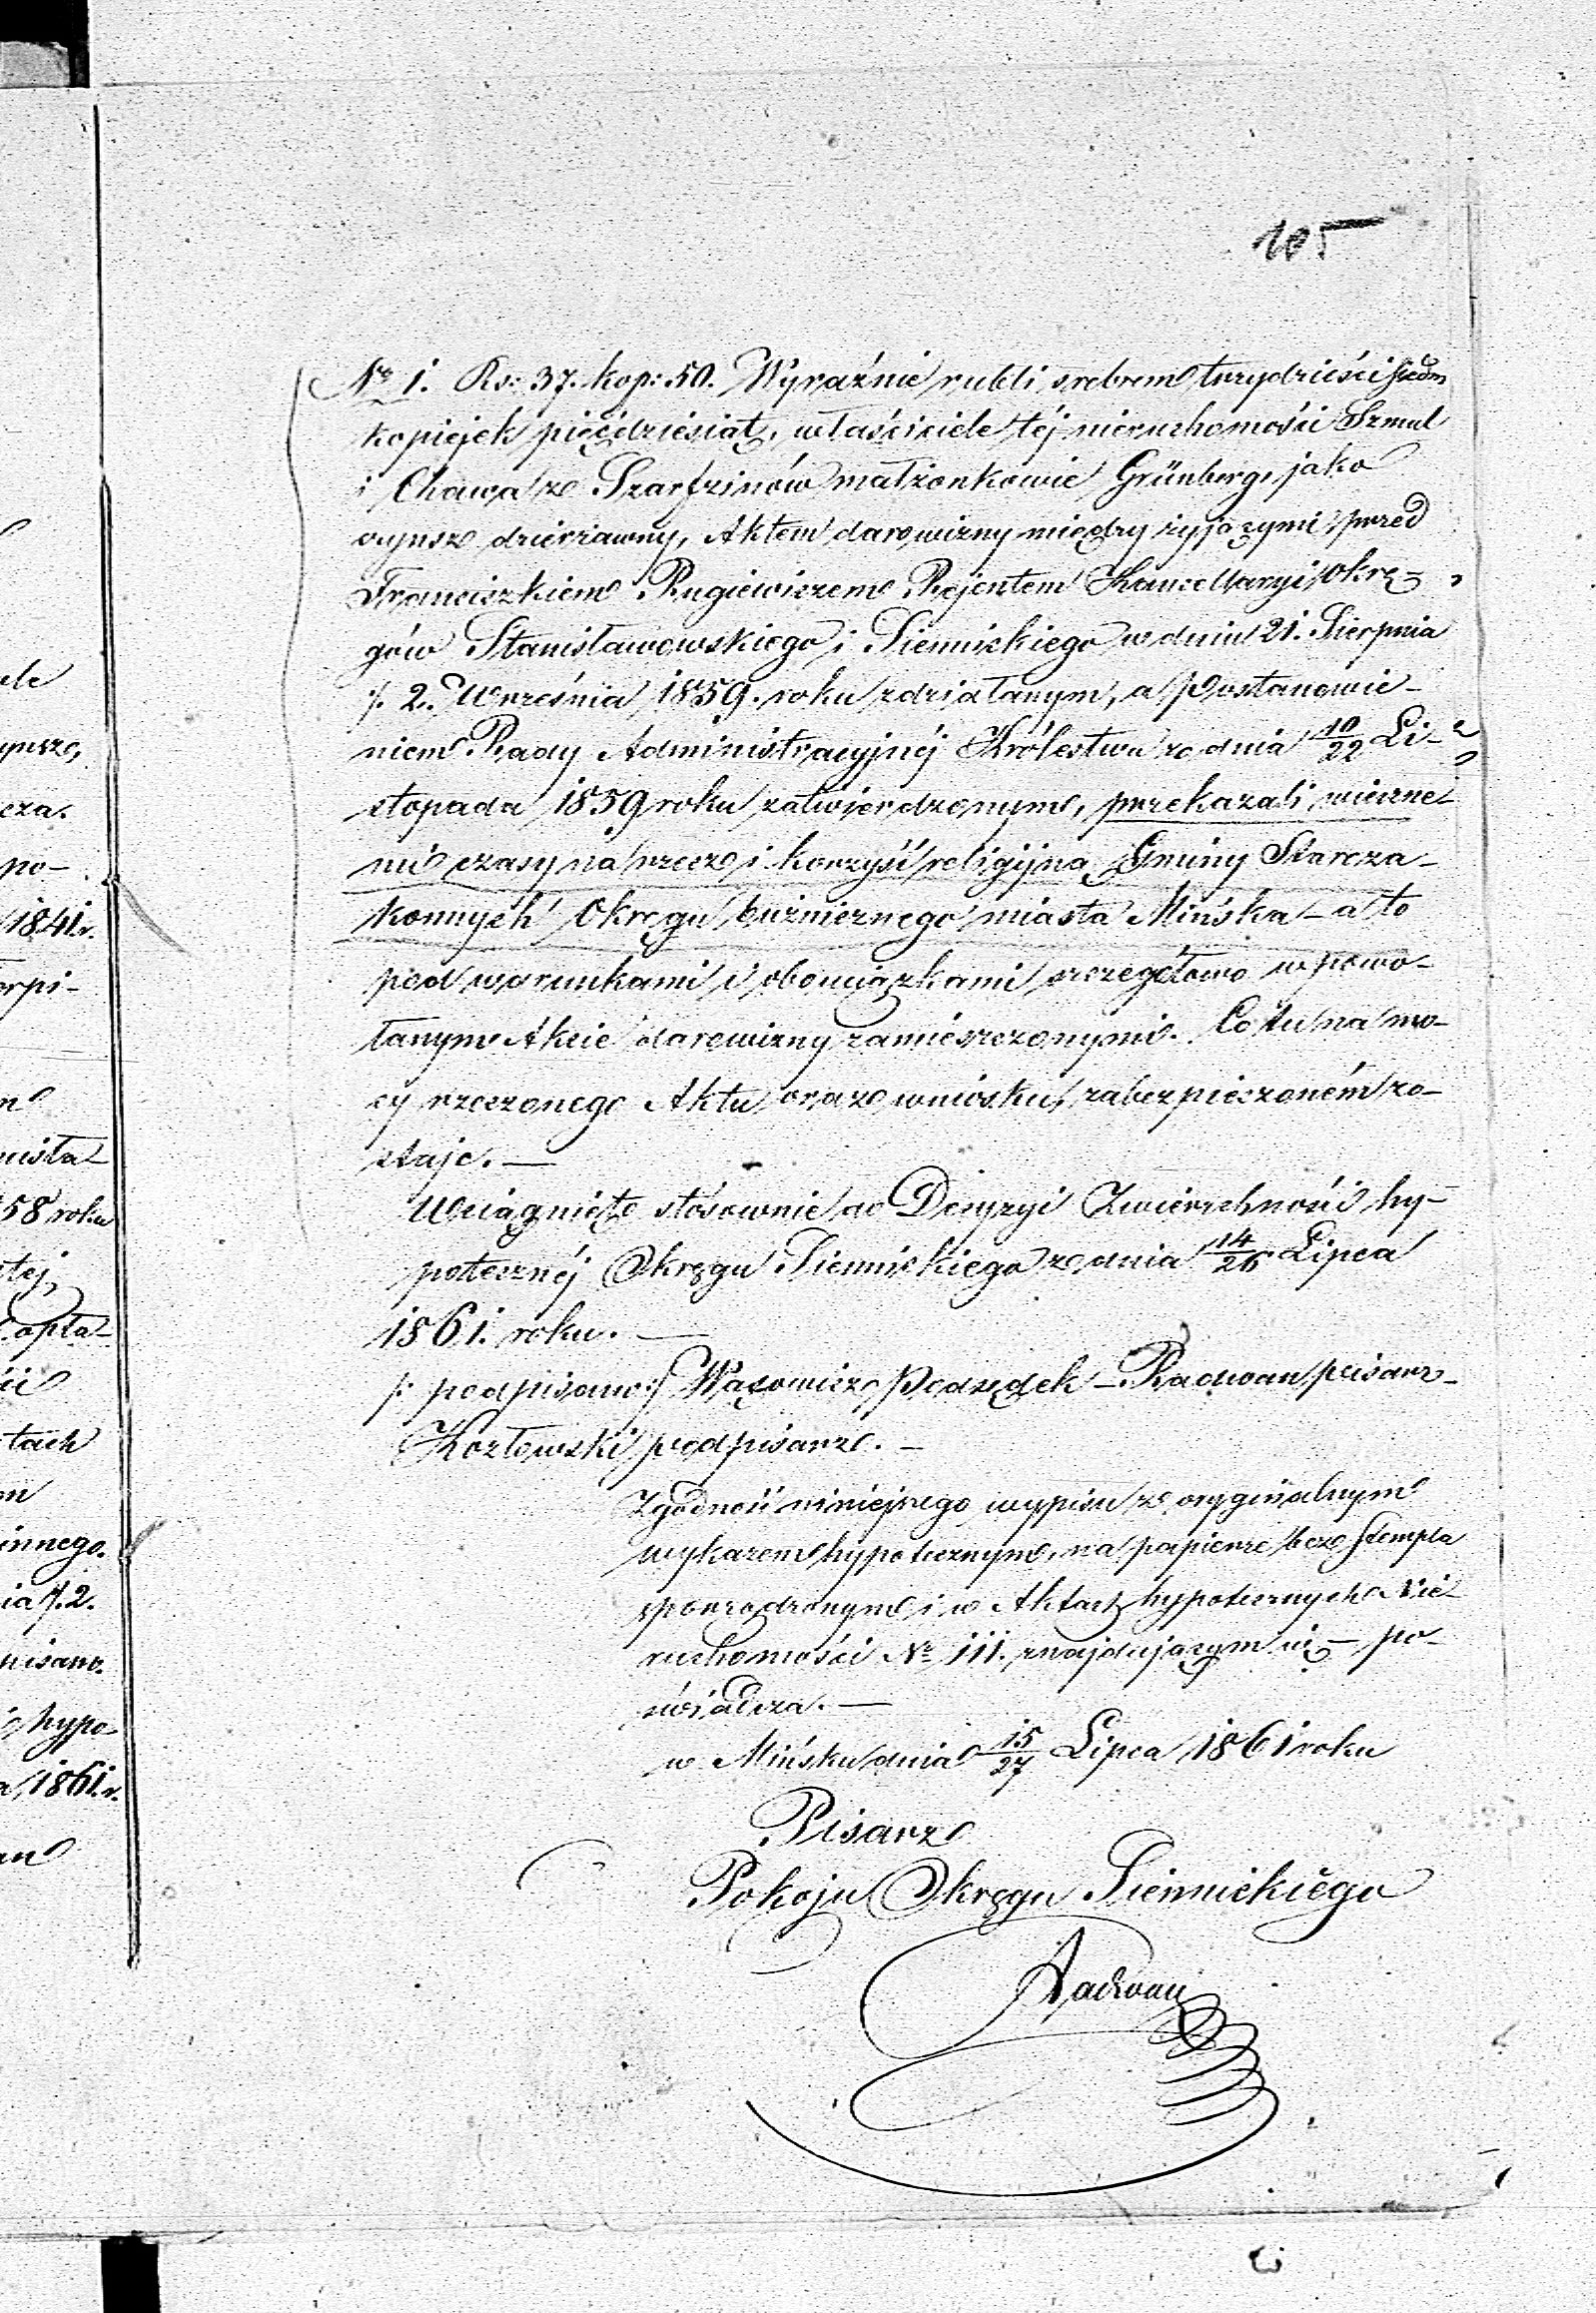 105
No 1. Rs: 37. kop: 50. Wyraźnie rubli srebrem trzydzieści siedm
kopiejek pięćdziesiąt, właściciele téj nieruchomości Szmul
i Chawa ze Szarfzinów małżonkowie Grünberg, jako
czynsz dzierżawny, Aktem darowizny między żyjącymi przed
Franciszkiem Rugiewiczem Rejentem Kancellaryi Okrę-
gów Stanisławowskiego i Siennickiego w dniu 21. Sierpnia
/: 2. Września 1859. roku zdziałanym, a Postanowie-
niem Rady Administracyjnéj Królestwa ze dnia 10/22 Li-
stopada 1859 roku zatwierdzonym, przekazali wieczne-
mi czasy na rzecz i korzyść religijną Gminy Staroza-
konnych Okręgu bużnicznego miasta Mińska – a to
pod warunkami i obowiązkami szczegółowo w powo-
łanym Akcie darowizny zamieszczonymi. Co tu na mo-
cy rzeczonego Aktu oraz wniosku, zabezpieczoném zo-
staje. —
Wciągnięto stósownie do Decyzyi Zwierzchności hy-
potecznéj Okręgu Siennickiego ze dnia 14/26 Lipca
1861. roku. —
/: podpisano :/ Wąsowicz Podsędek – Radwan pisarz –
Kozłowski podpisarz. –
Zgodność niniejszego wypisu ze oryginalnym
wykazem hypotecznym, na papierze bez stempla
sporządzonym i w Aktach hypotecznych Nie-
ruchomości No 111. znajdującym się – po-
świadcza. —
w Mińsku dnia 15/27 Lipca 1861 roku
Pisarz
Pokoju Okręgu Siennickiego
Radwan
ele
cza.
po-
1841 r.
erpi-
58 roku
tej,
opła-
tach
innego.
ia /: 2.
hypo-
1861. r.